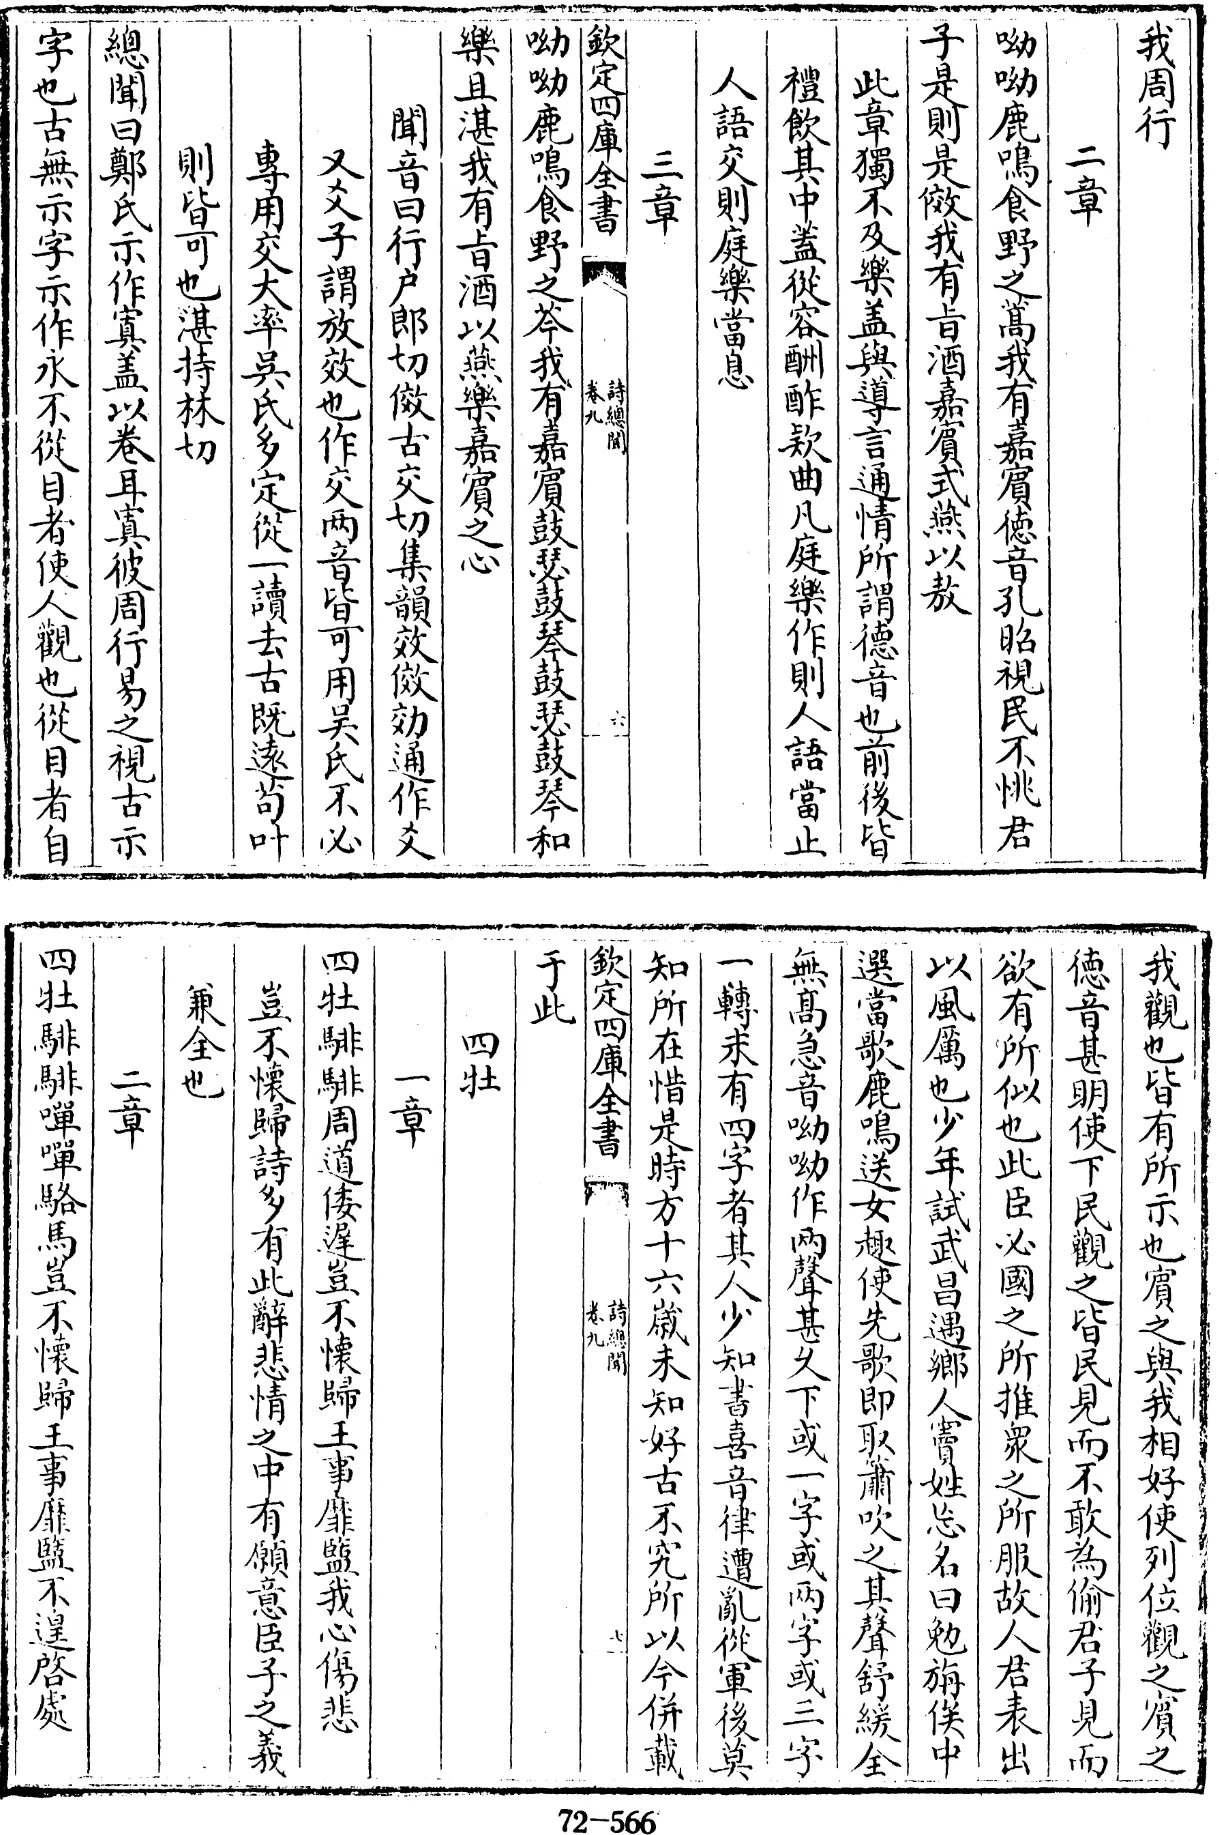 我周行
二章
呦呦鹿鳴食野之蒿我有嘉賓德音孔昭視民不恌君
子是則是傚我有㫖酒嘉賓式燕以敖
此章獨不及樂盖與導言通情所謂德音也前後皆
禮飲其中蓋從容酬酢欵曲凡庭樂作則人語當止
人語交則庭樂當息
三章
欽定四庫全書
詩總聞
卷九
六
呦呦鹿鳴食野之芩我有嘉賓鼓瑟鼓琴鼓瑟鼓琴和
樂且湛我有㫖酒以燕樂嘉賓之心
聞音曰行户郎切傚古交切集韻效傚効通作爻
又爻子謂放效也作交两音皆可用吳氏不必
專用交大率吳氏多定從一讀去古既逺茍叶
則皆可也湛持林切
總聞曰鄭氏示作寘盖以卷耳寘彼周行易之視古示
字也古無示字示作永不從目者使人觀也從目者自
我觀也皆有所示也賓之與我相好使列位觀之賓之
德音甚明使下民觀之皆民見而不敢為偷君子見而
欲有所似也此臣必國之所推衆之所服故人君表出
以風厲也少年試武昌遇鄉人竇姓忘名曰勉旃俟中
選當歌鹿鳴送女趣使先歌即取簫吹之其聲舒緩全
無髙急音呦呦作兩聲甚乆下或一字或两字或三字
一轉未有四字者其人少知書喜音律遭亂從軍後莫
知所在惜是時方十六嵗未知好古不究所以今併載
欽定四庫全書
詩總聞
卷九
七
于此
四牡
一章
四牡騑騑周道倭遲豈不懷歸王事靡盬我心傷悲
豈不懷歸詩多有此辭悲情之中有領意臣子之義
兼全也
二章
四牡騑騑嘽嘽駱馬豈不懷歸王事靡盬不遑啓處
72-566